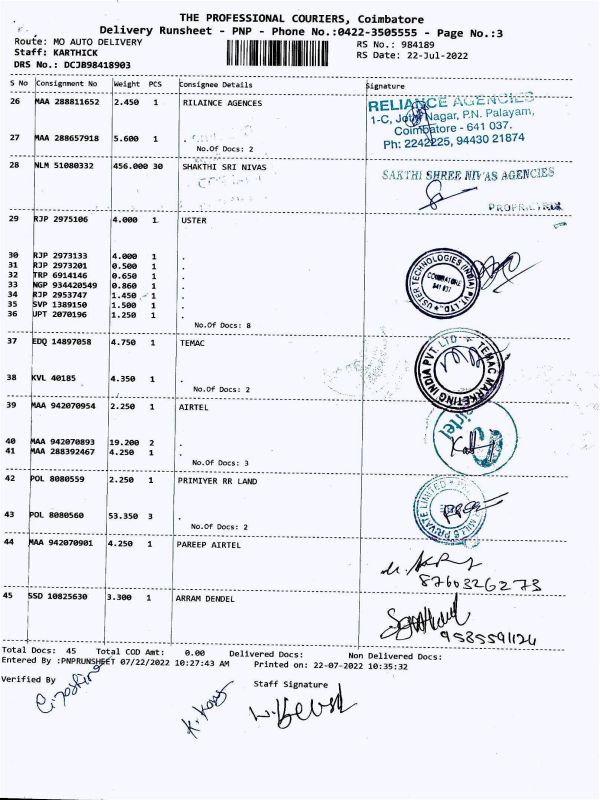 THE PROFESSIONAL COURIERS, Coimbatore
Delivery Runsheet - PNP - Phone No.:0422-3505555 - Page No.:3
Route: MO AUTO DELIVERY RS No.: 984189
Staff: KARTHICK RS Date: 22-Jul-2022
DRS No.: DCJB98418903
S No Consignment No Weight PCS Consignee Details Signature
26 MAA 288811652 2.450 1 RILAINCE AGENCIES
RELIANCE AGENCIES
1-C, Jothi Nagar, P.N. Palayam,
Coimbatore - 641 037.
Ph: 2242225, 94430 21874
27 MAA 288657918 5.600 1 .
No.Of Docs: 2
28 NLM 51080332 456.000 30 SHAKTHI SRI NIVAS
SAKTHI SHREE NIVAS AGENCIES
PROPRIETRIX
29 RJP 2975106 4.000 1 USTER
30 RJP 2973133 4.000 1 .
31 RJP 2973201 0.500 1 .
32 TRP 6914146 0.650 1 .
33 NGP 934420549 0.860 1 .
34 RJP 2953747 1.450 1 .
35 SVP 1389150 1.500 1 .
36 UPT 2070196 1.250 1 .
No.Of Docs: 8
USTER TECHNOLOGIES (INDIA) PVT. LTD.
COIMBATORE
641 037
37 EDQ 14897058 4.750 1 TEMAC
TEMAC MARKETING INDIA PVT. LTD
38 KVL 40185 4.350 1 .
No.Of Docs: 2
39 MAA 942070954 2.250 1 AIRTEL
airtel
40 MAA 942070893 19.200 2 .
41 MAA 288392467 4.250 1 .
No.Of Docs: 3
42 POL 8080559 2.250 1 PRIMIYER RR LAND
MILLS PRIVATE LIMITED
43 POL 8080560 53.350 3 .
No.Of Docs: 2
44 MAA 942070901 4.250 1 PAREEP AIRTEL
8760326273
45 SSD 10825630 3.300 1 ARRAM DENDEL
9585591124
Total Docs: 45 Total COD Amt: 0.00 Delivered Docs: Non Delivered Docs:
Entered By :PNPRUNSHEET 07/22/2022 10:27:43 AM Printed on: 22-07-2022 10:35:32
Verified By Staff Signature